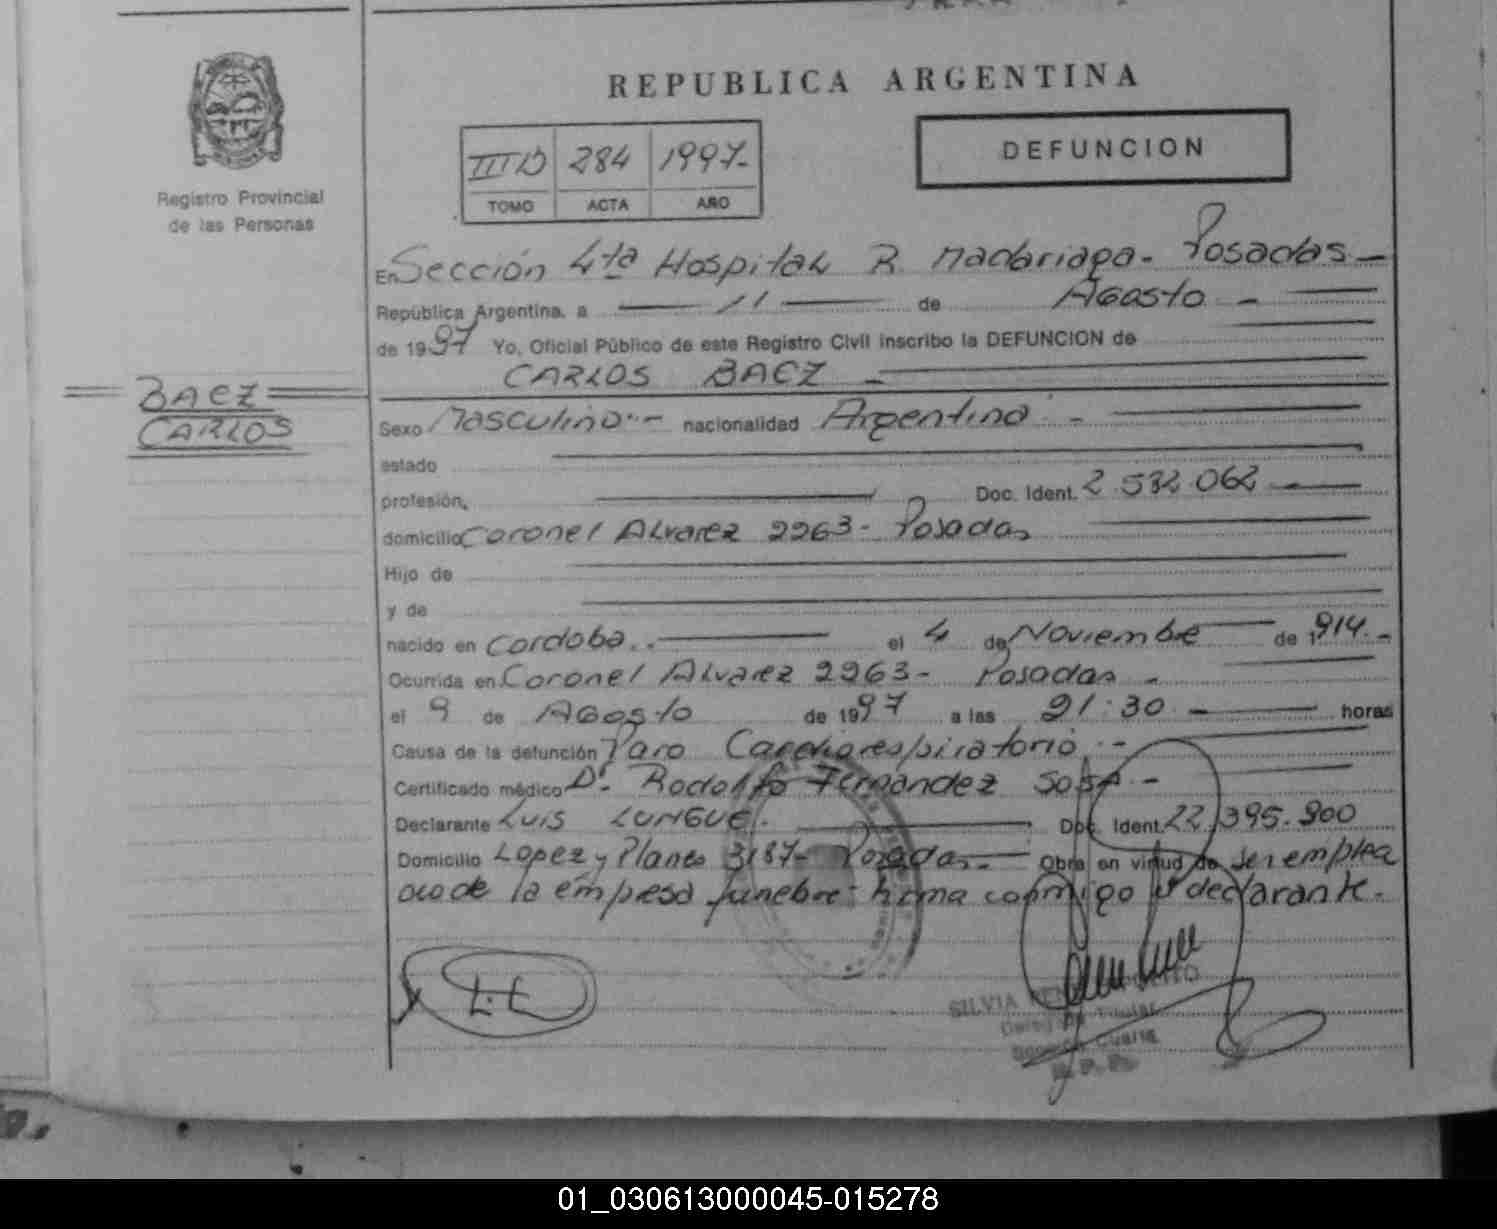 REPUBLICA ARGENTINA
Registro Provincial
de las Personas
IIID 284 1997.-
TOMO ACTA AÑO
DEFUNCION
En Sección 4ta Hospital R. Madariaga - Posadas -
República Argentina, a 11 de Agosto -
de 1997 Yo, Oficial Público de este Registro Civil inscribo la DEFUNCION de
CARLOS BAEZ -
BAEZ
CARLOS
Sexo Masculino.- nacionalidad Argentina -
estado
profesión, Doc. Ident. 2.532.062
domicilio Coronel Alvarez 2263 - Posadas
Hijo de
y de
nacido en Cordoba.- el 4 de Noviembre de 1914.-
Ocurrida en Coronel Alvarez 2263 - Posadas -
el 9 de Agosto de 1997 a las 21:30 - horas
Causa de la defunción Paro Cardiorespiratorio.-
Certificado médico Dr. Rodolfo Fernandez Sosa -
Declarante Luis LUNGUE. Doc. Ident. 22.395.900
Domicilio Lopez y Planes 3187 - Posadas.- Obra en virtud de ser emplea
do de la empresa funebre: firma conmigo el declarante.-
L.L
SILVIA
Titular
Sección Cuarta
R. P. P.
01_030613000045-015278